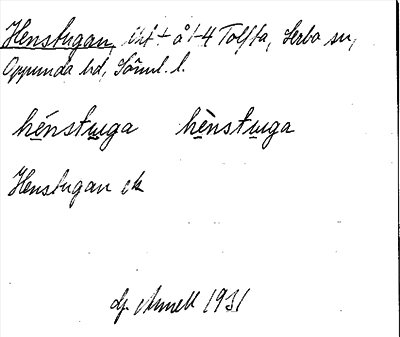 Henstugan, till å 1/4 Tolfta, Lerbo sn,
Oppunda hd, Söml. l.
hénstuga hènstuga
Henstugan ek
af. Ahnell 1931